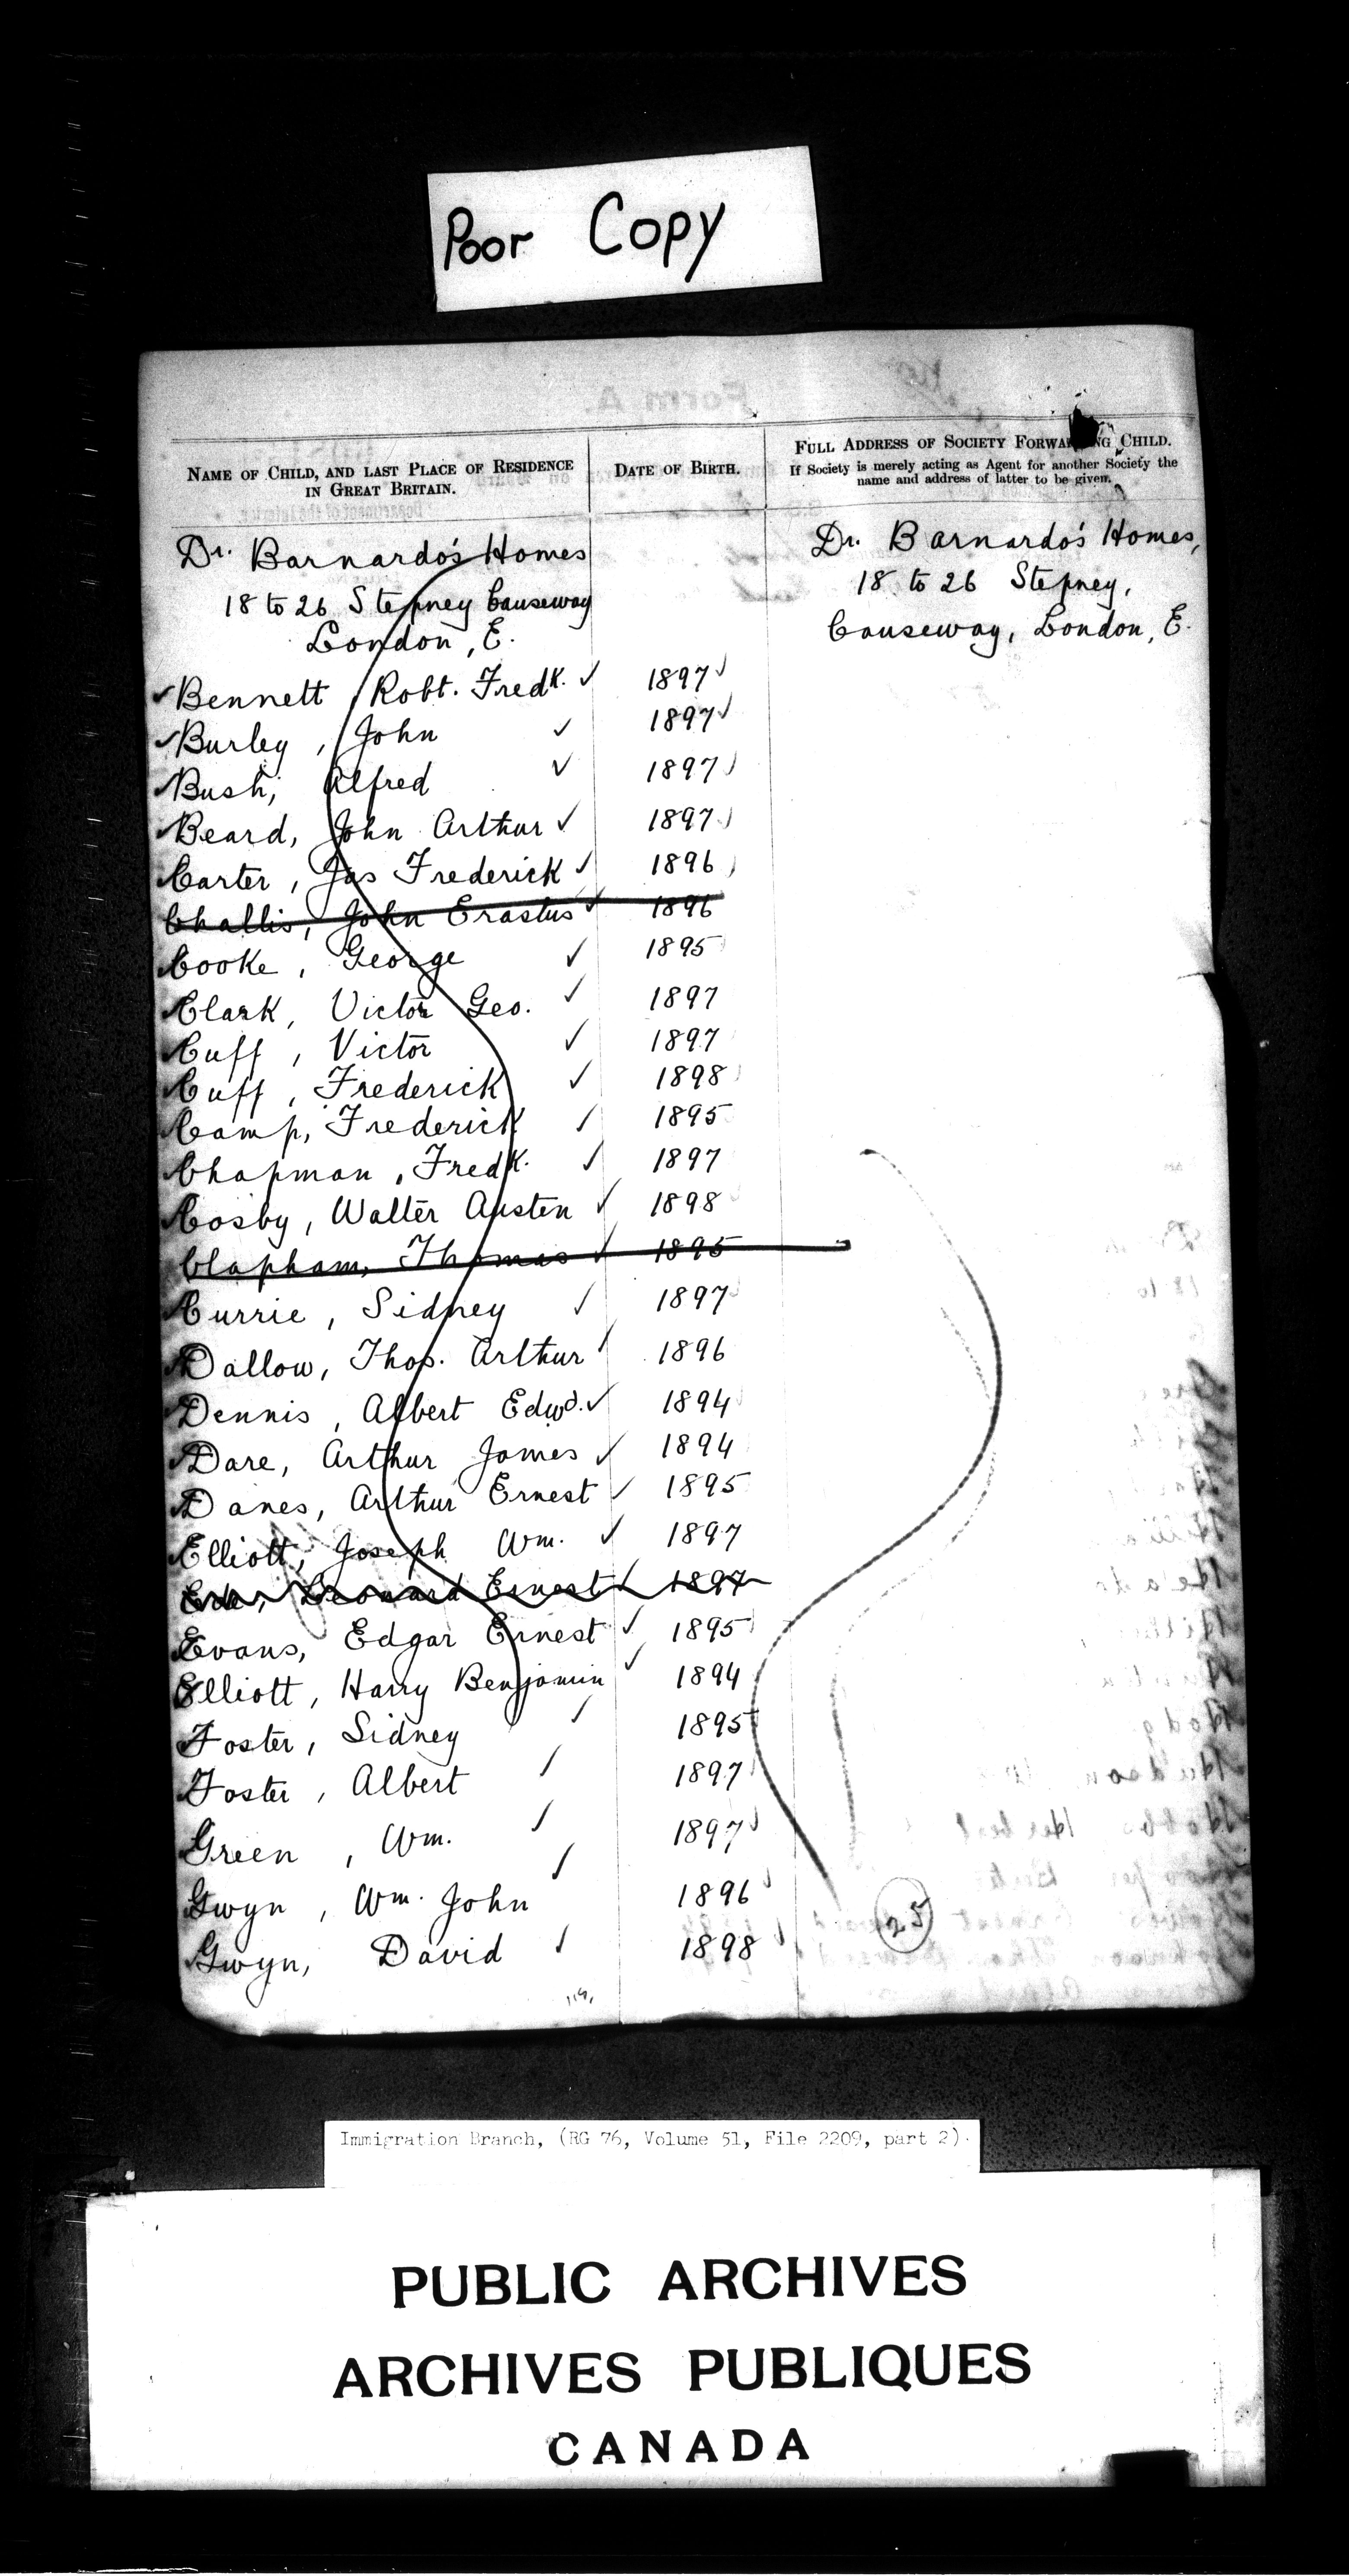 Poor Copy
NAME OF CHILD, AND LAST PLACE OF RESIDENCE
IN GREAT BRITAIN.
DATE OF BIRTH.
FULL ADDRESS OF SOCIETY FORWARDING CHILD.
If Society is merely acting as Agent for another Society the
name and address of latter to be given.
Dr. Barnardo's Homes
18 to 26 Stepney Causeway
London, E.
Dr. Barnardo's Homes,
18 to 26 Stepney,
Causeway, London, E.
Bennett, Robt. Fredk. 1897
Burley, John 1897
Bush, Alfred 1897
Beard, John Arthur 1897
Carter, Jas Frederick 1896
Challis, John Erastus 1896
Cooke, George 1895
Clark, Victor Geo. 1897
Cuff, Victor 1897
Cuff, Frederick 1898
Camp, Frederick 1895
Chapman, Fredk. 1897
Cosby, Walter Austen 1898
Clapham, Thomas 1895
Currie, Sidney 1897
Dallow, Thos. Arthur 1896
Dennis, Albert Edwd. 1894
Dare, Arthur James 1894
Danes, Arthur Ernest 1895
Elliott, Joseph Wm. 1897
Ede, Leonard Ernest 1897
Evans, Edgar Ernest 1895
Elliott, Harry Benjamin 1894
Foster, Sidney 1895
Foster, Albert 1897
Green, Wm. 1897
Gwyn, Wm. John 1896
Gwyn, David 1898
25
Immigration Branch, (RG 76, Volume 51, File 2209, part 2).
PUBLIC ARCHIVES
ARCHIVES PUBLIQUES
CANADA